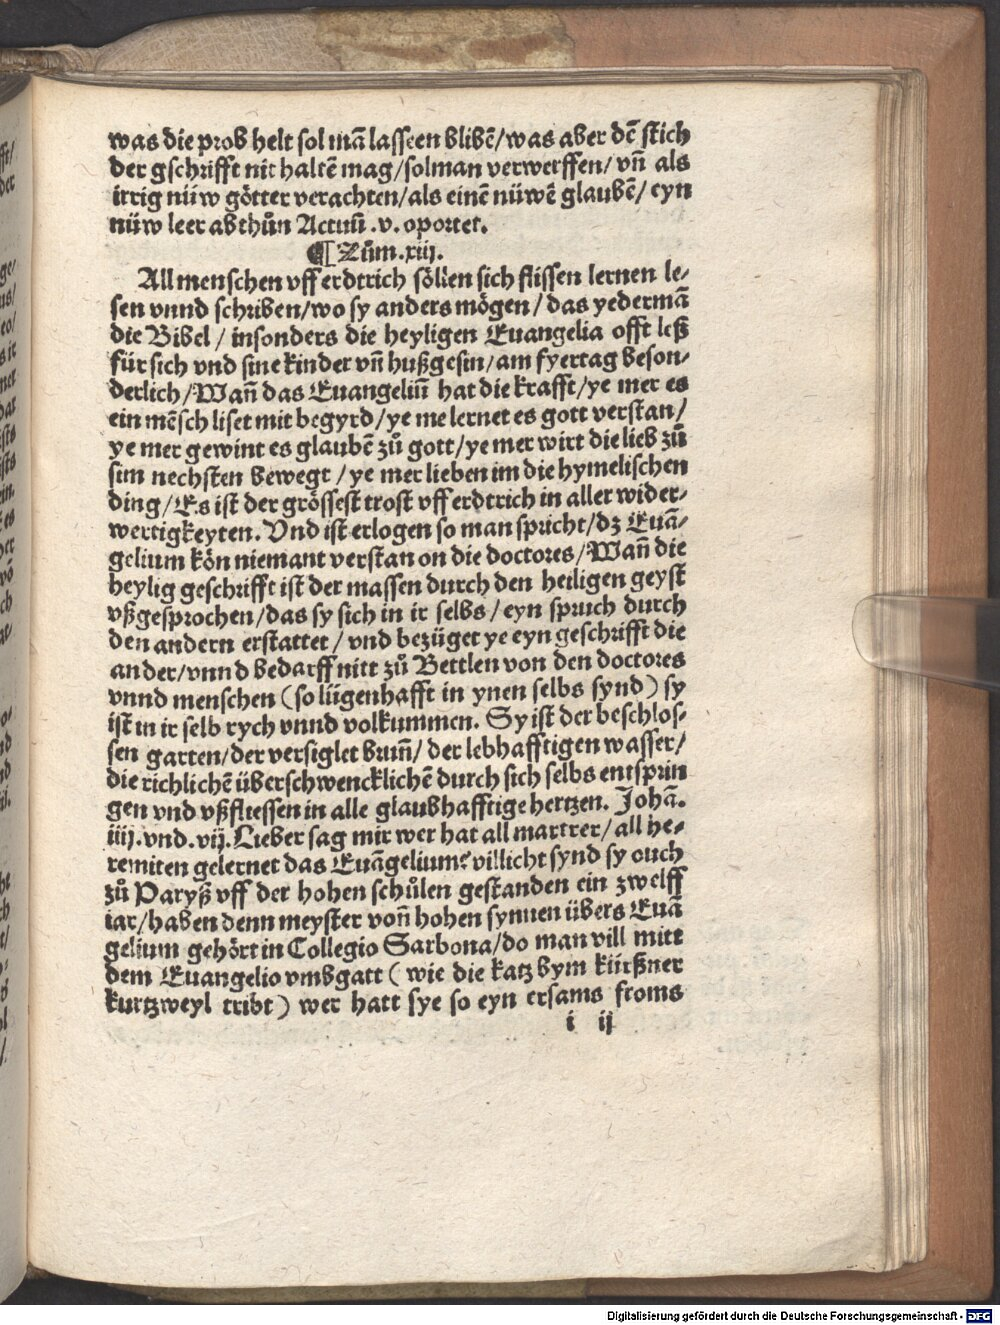 was die prob helt sol mā lasseen blibē/was aber dē stich
der gschrifft nit haltē mag/solman verwerffen/vn̄ als
irrig nüw götter verachten/als einē nüwē glaubē/eyn
nüw leer abthůn Actuū.v.oportet.
¶ Zům.xiij.
All menschen vff erdtrich söllen sich flissen lernen le-
sen vnnd schriben/wo sy anders mögen/das yedermā
die Bibel/insonders die heyligen Euangelia offt leß
für sich vnd sine kinder vn̄ hußgesin/am fyertag beson-
derlich/Wan̄ das Euangeliū hat die krafft/ye mer es
ein mēsch liset mit begyrd/ye me lernet es gott verstan/
ye mer gewint es glaubē zů gott/ye mer wirt die lieb zů
sim nechsten bewegt/ye mer lieben im die hymelischen
ding/Es ist der grössest trost vff erdtrich in aller wider-
wertigkeyten. Vnd ist erlogen so man spricht/dz Euā-
gelium kön niemant verstan on die doctores/Wan̄ die
heylig geschrifft ist der massen durch den heiligen geyst
vßgesprochen/das sy sich in ir selbs/eyn spruch durch
den andern erstattet/vnd bezüget ye eyn geschrifft die
ander/vnnd bedarff nitt zů Bettlen von den doctores
vnnd menschen (so lügenhafft in ynen selbs synd) sy
ist in ir selb rych vnnd volkummen. Sy ist der beschlos-
sen garten/der versiglet brun̄/der lebhafftigen wasser/
die richlichē überschwencklichē durch sich selbs entsprin
gen vnd vßfliessen in alle glaubhafftige hertzen. Johā.
iiij.vnd.vij.Lieber sag mir wer hat all martrer/all he-
remiten gelernet das Euāgelium? villicht synd sy ouch
zů Paryß vff der hohen schůlen gestanden ein zwelff
iar/haben denn meyster von̄ hohen synnen übers Euā
gelium gehört in Collegio Sarbona/do man vill mitt
dem Euangelio vmbgatt (wie die katz bym kürßner
kurtzweyl tribt) wer hatt sye so eyn ersams froms
i ij
Digitalisierung gefördert durch die Deutsche Forschungsgemeinschaft - DFG